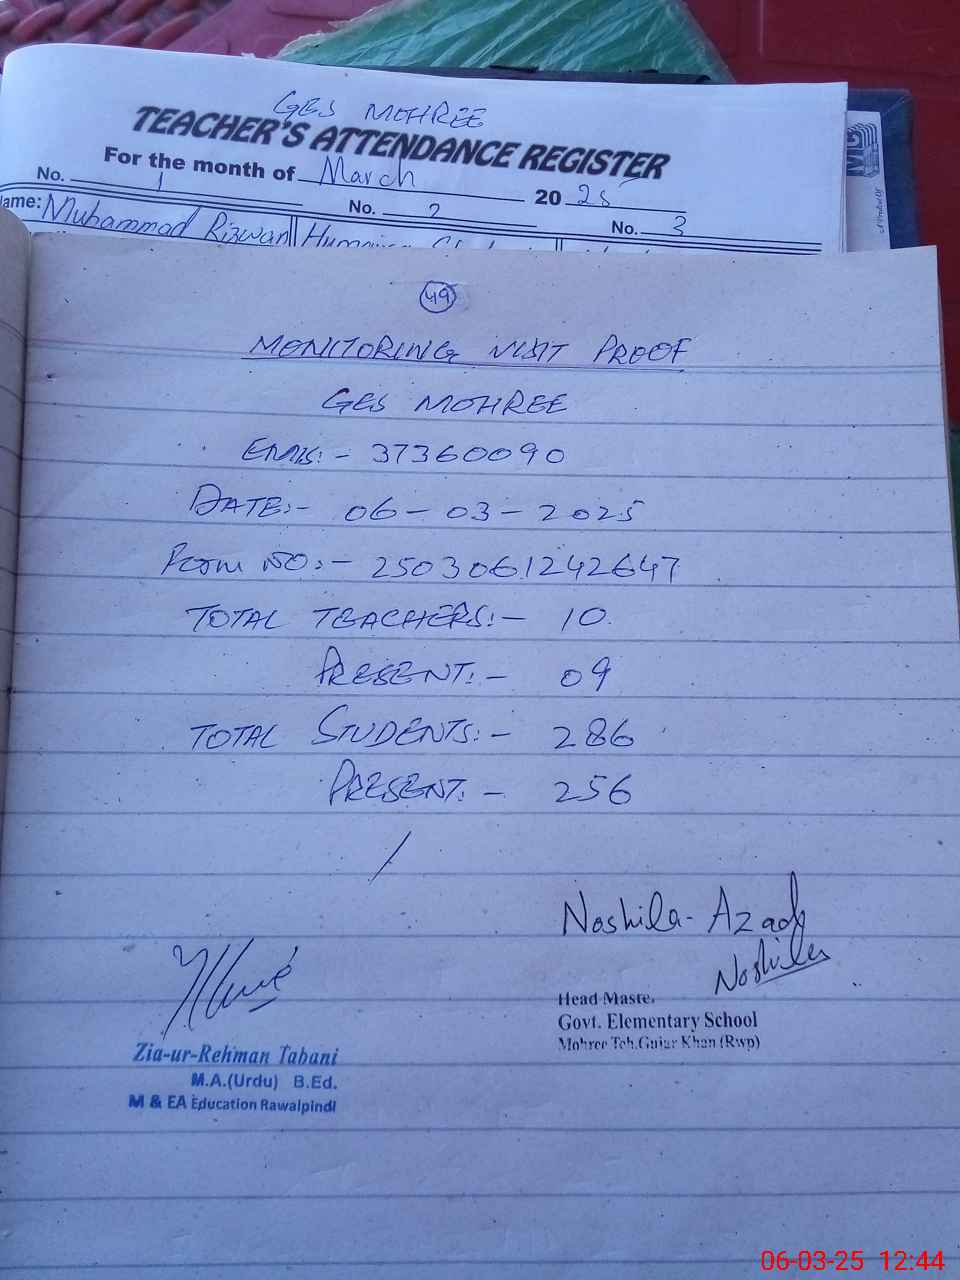 GES MOHREE
TEACHER'S ATTENDANCE REGISTER
For the month of March 2025
No. 1 No. 2 No. 3
ame: Muhammad Rizwan
49
MONITORING VISIT PROOF
GES MOHREE
EMIS:- 37360090
DATE:- 06-03-2025
FORM NO:- 2503061242647
TOTAL TEACHERS:- 10
PRESENT:- 09
TOTAL STUDENTS:- 286
PRESENT:- 256
Noshila-Azad
Noshila
Head Maste.
Govt. Elementary School
Mohree Teh.Gujar Khan (Rwp)
Zia-ur-Rehman Tabani
M.A.(Urdu) B.Ed.
M & EA Education Rawalpindi
06-03-25 12:44